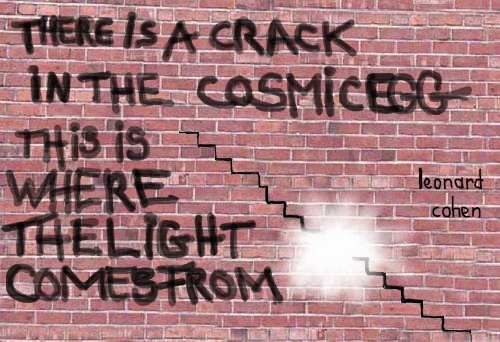 THERE iS A CRACK
iN THE COSMiC EGG
THiS iS
WHERE
THE LiGHT
COMES FROM
leonard
cohen